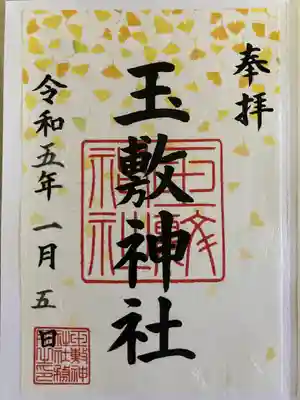 奉拝
玉敷神社
令和五年一月五日
玉敷神社
玉敷神社社務之印